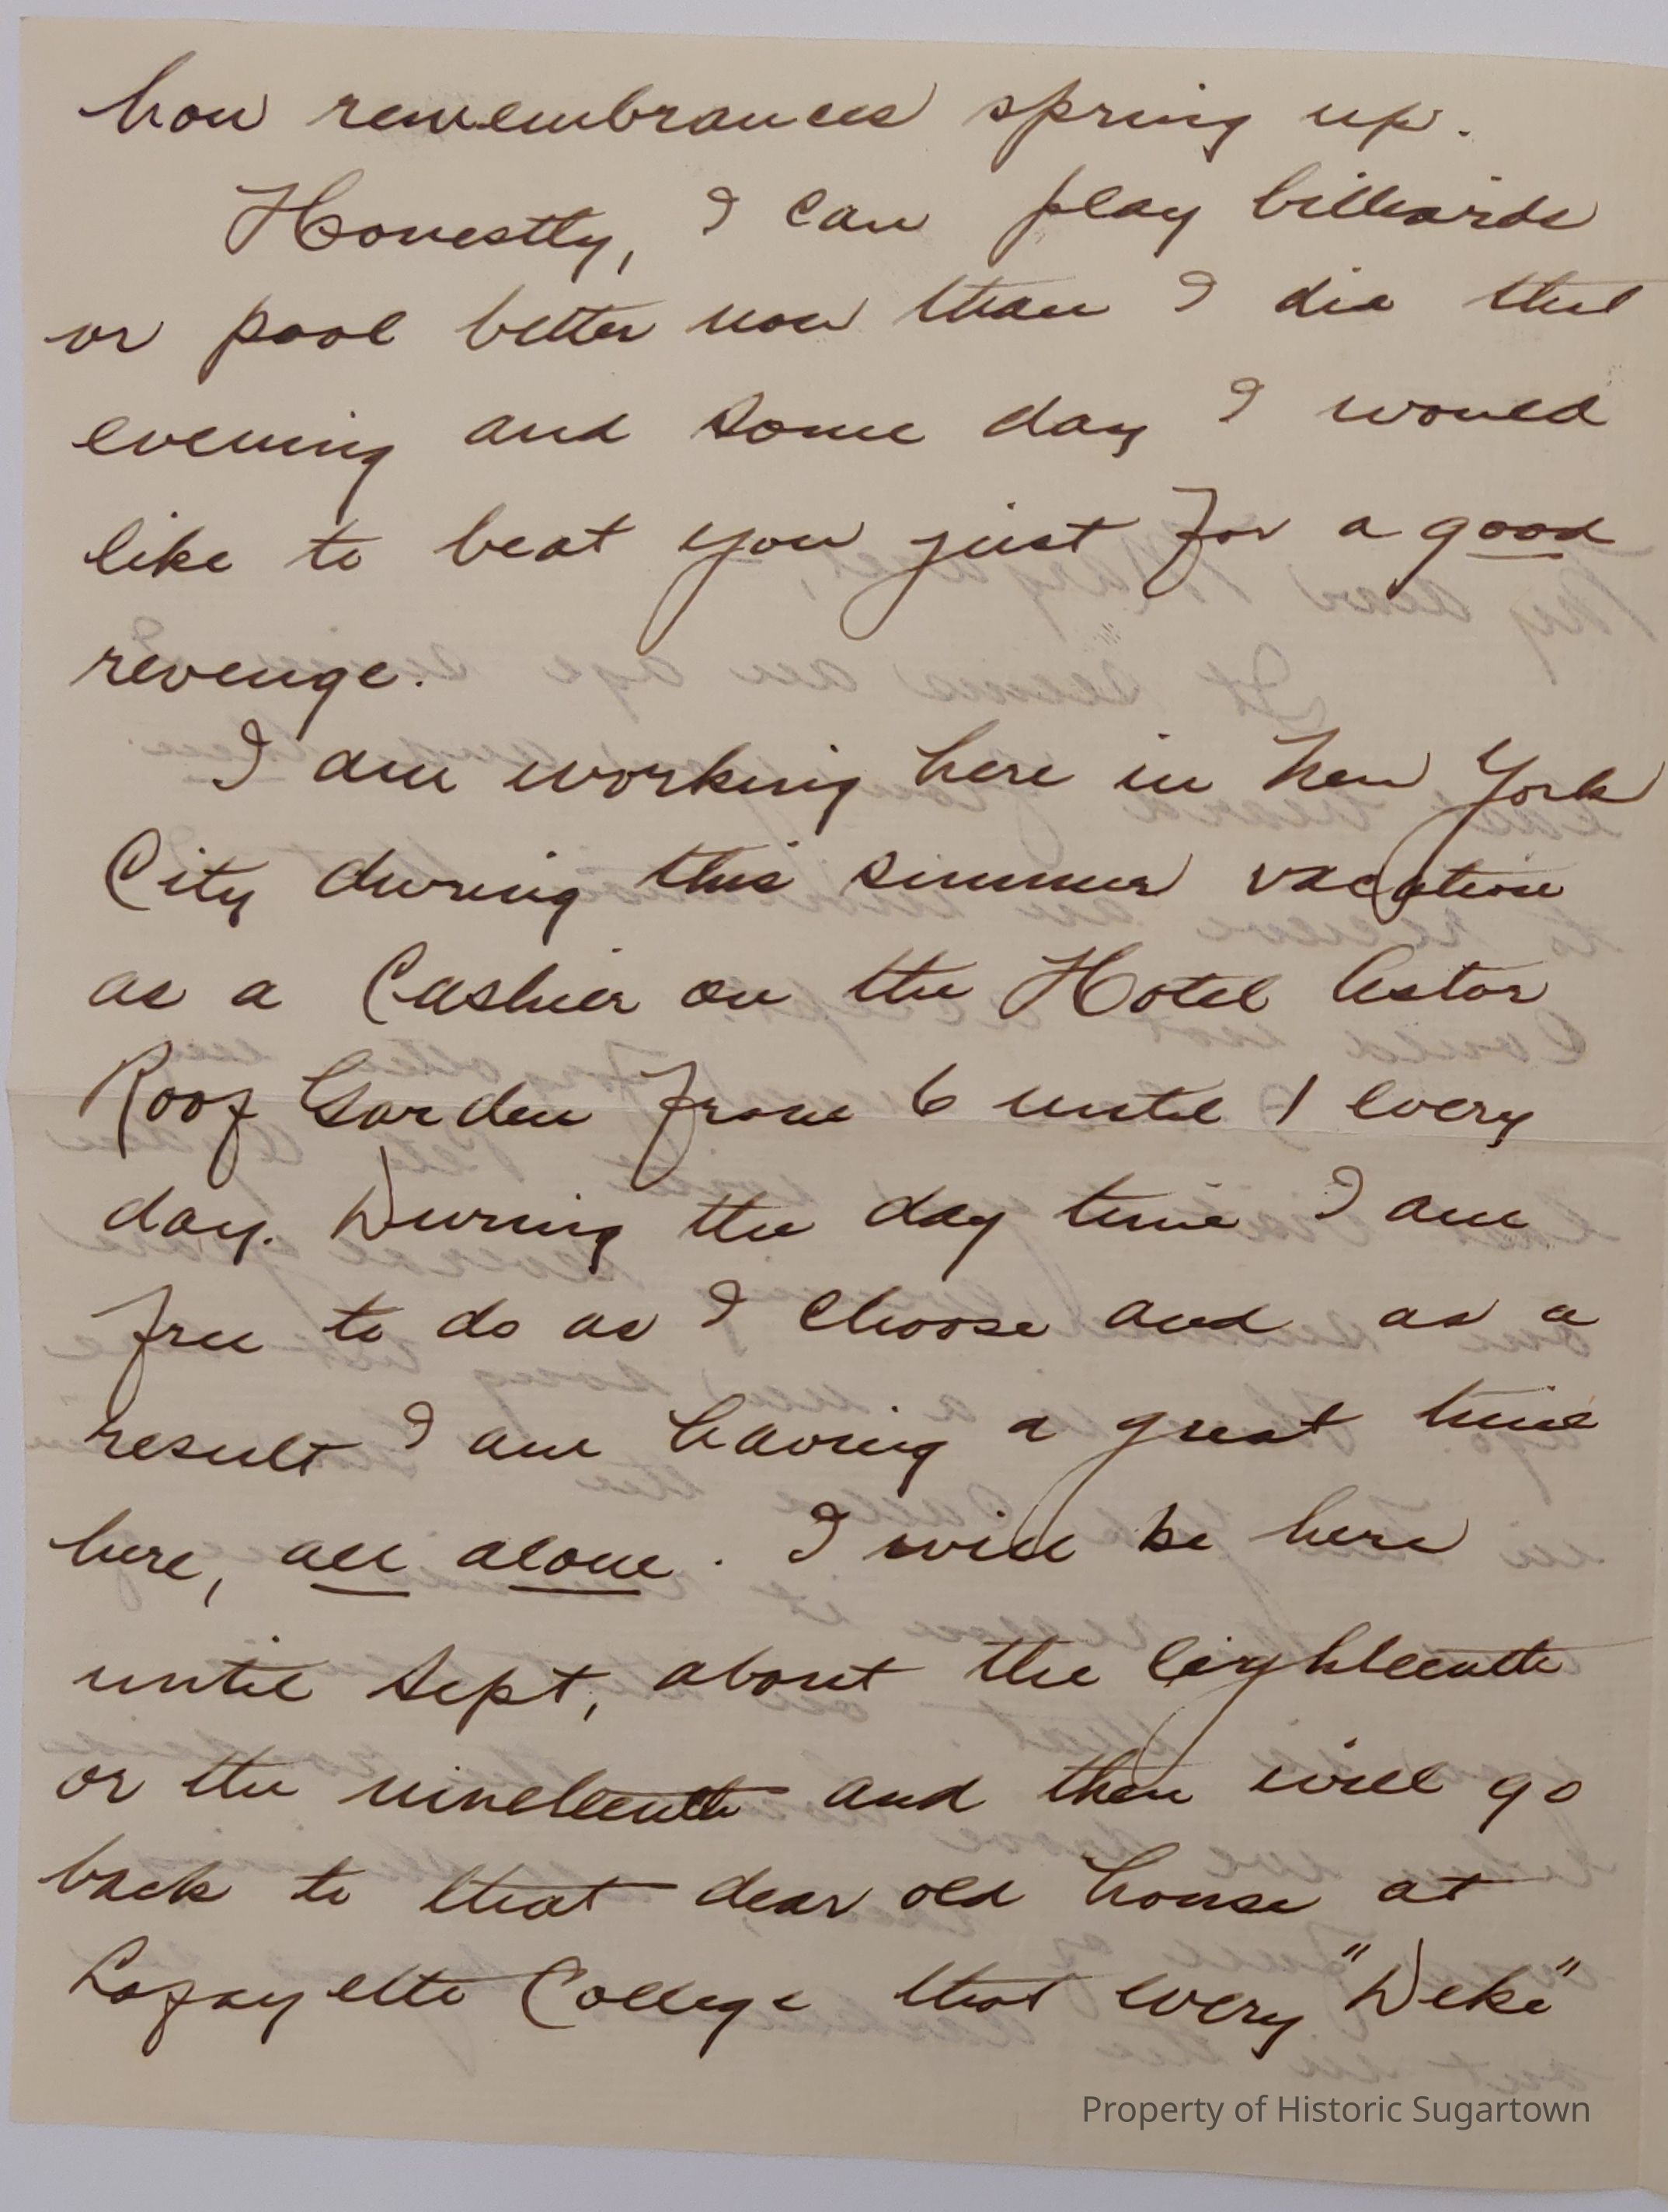 how remembrances spring up.
Honestly, I can play billiards
or pool better now than I did that
evening and some day I would
like to beat you just for a good
revenge.
I am working here in New York
City during this summer vacation
as a Cashier on the Hotel Astor
Roof Garden from 6 until 1 every
day. During the day time I am
free to do as I choose and as a
result I am having a great time
here, all alone. I will be here
until Sept, about the eighteenth
or the nineteenth and then will go
back to that dear old house at
Lafayette College that every "Deke"
Property of Historic Sugartown